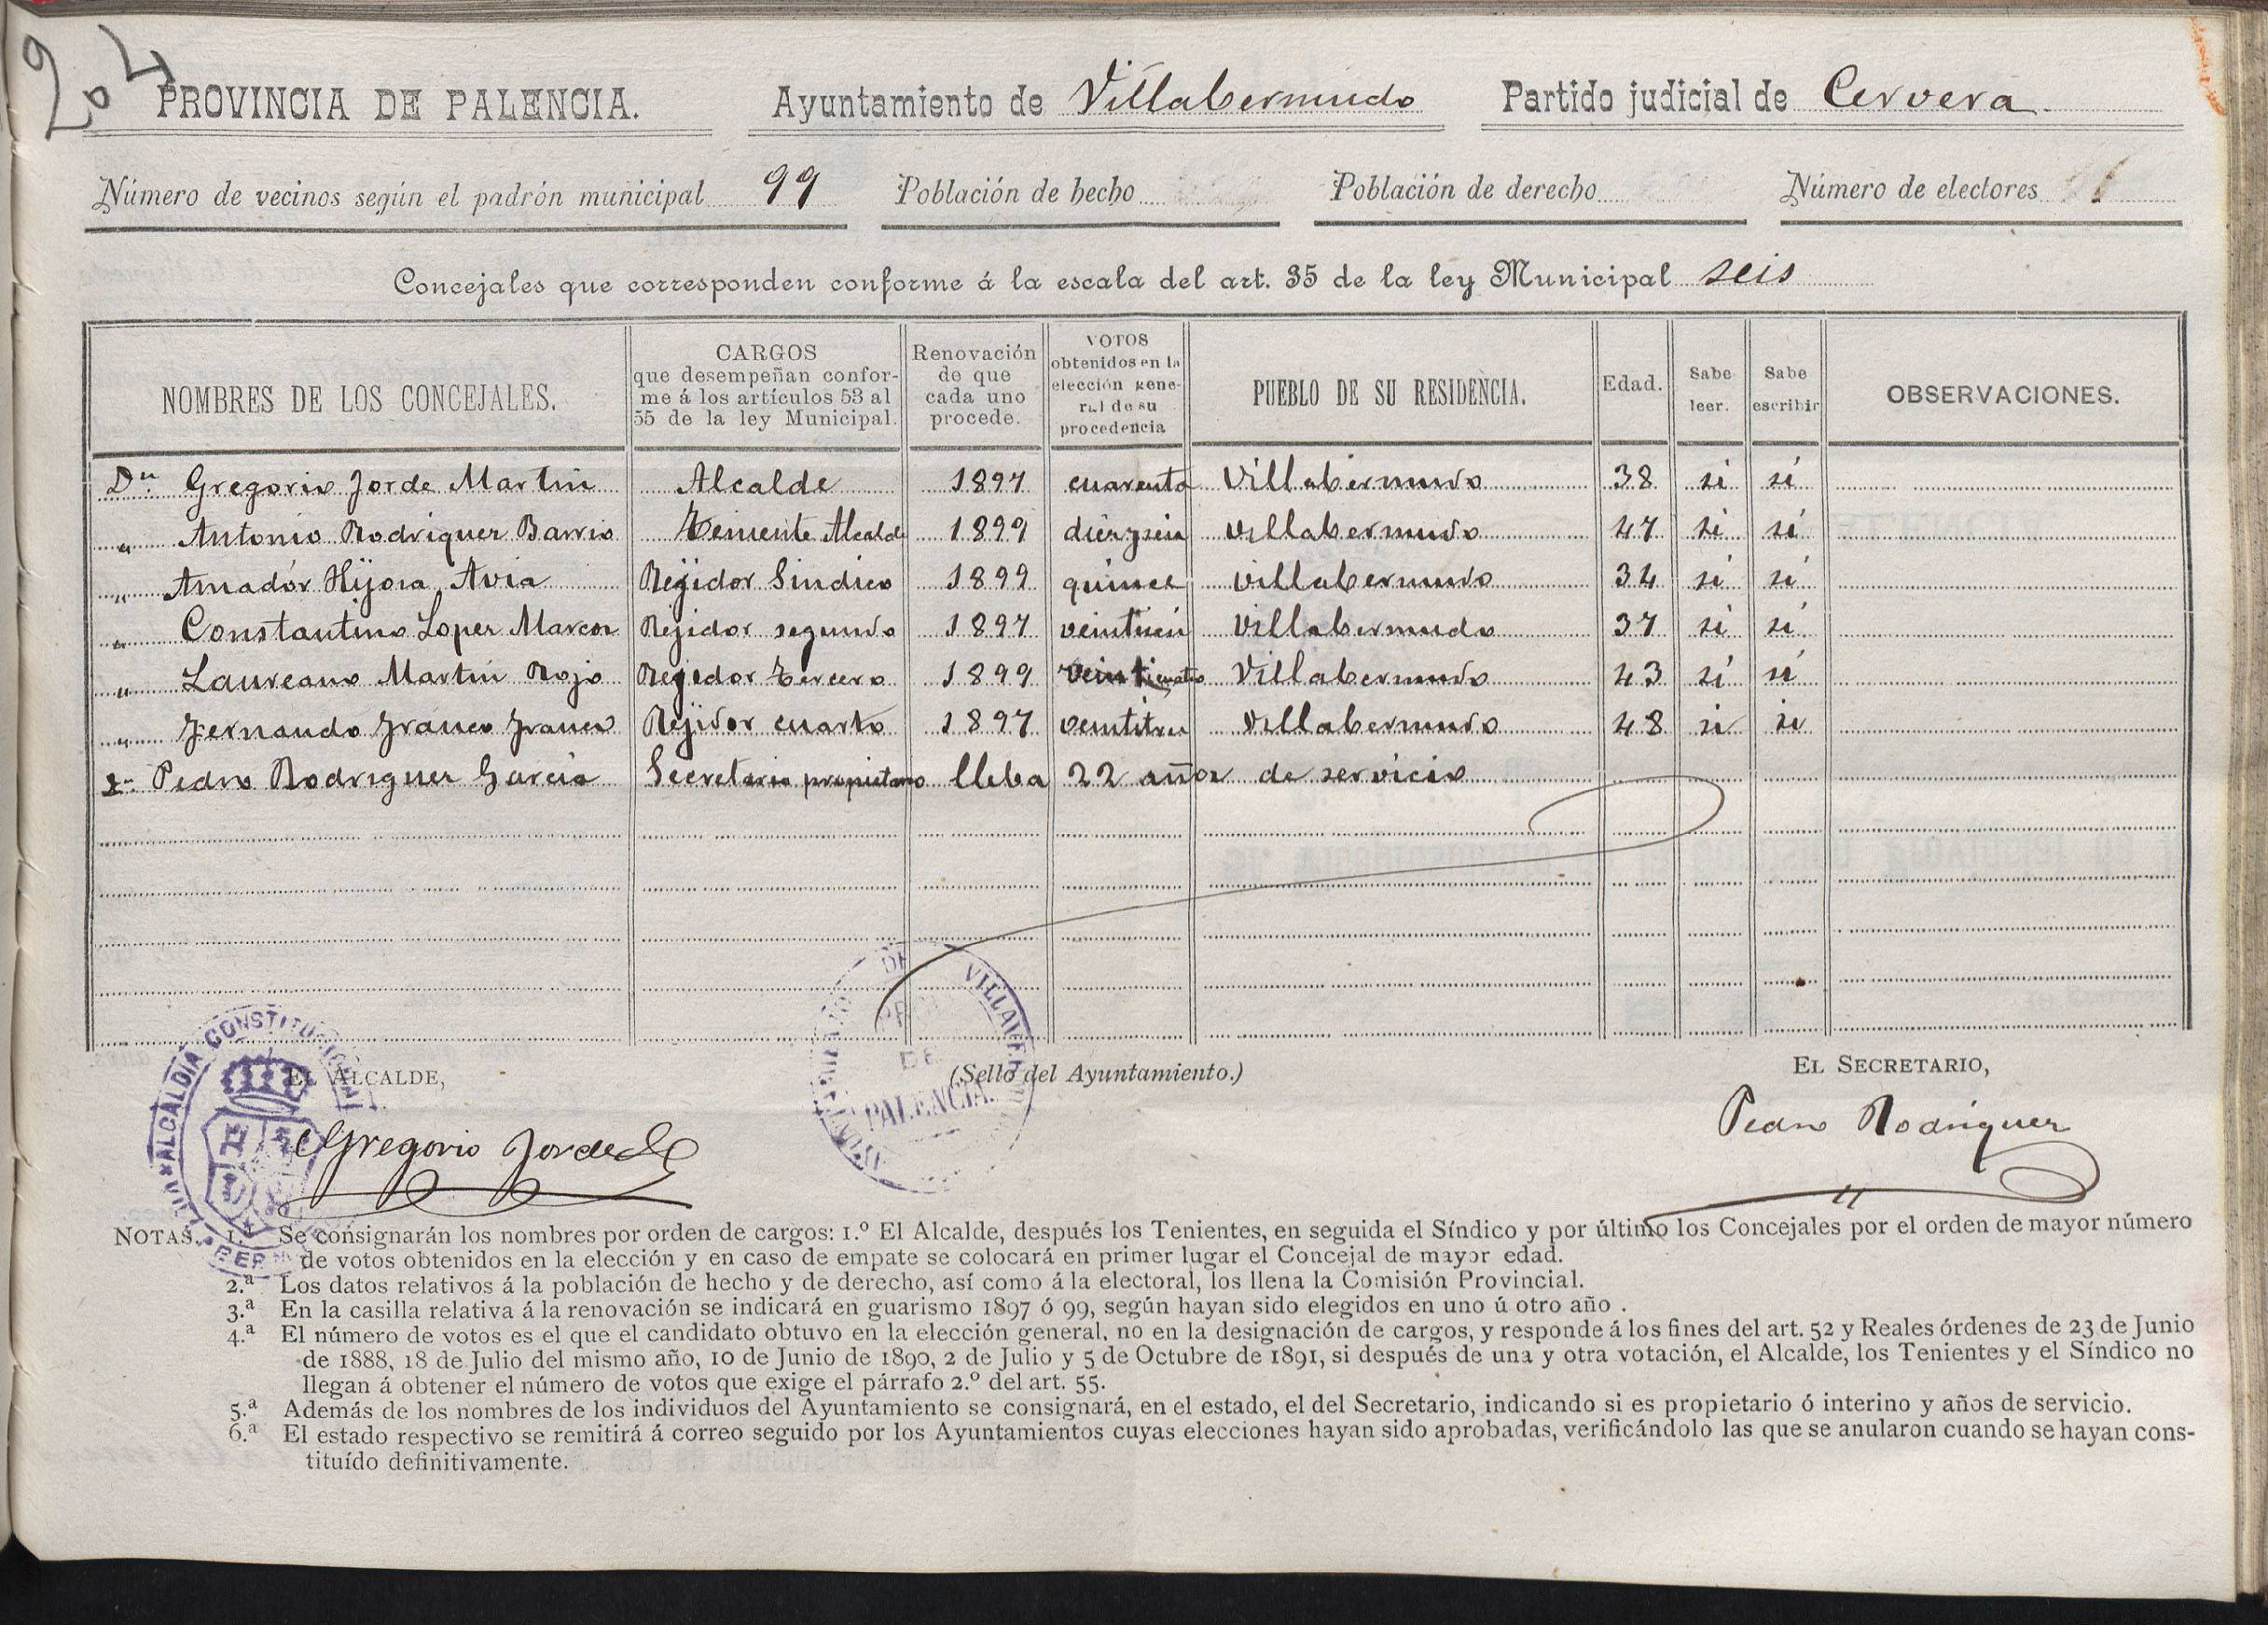 204
PROVINCIA DE PALENCIA. Ayuntamiento de Villabermudo Partido judicial de Cervera
Número de vecinos según el padrón municipal 99 Población de hecho Población de derecho Número de electores
Concejales que corresponden conforme á la escala del art. 35 de la ley Municipal seis
NOMBRES DE LOS CONCEJALES. CARGOS que desempeñan confor- me á los artículos 53 al 55 de la ley Municipal. Renovación de que cada uno procede. VOTOS obtenidos en la elección gene- ral de su procedencia PUEBLO DE SU RESIDENCIA. Edad. Sabe leer. Sabe escribir OBSERVACIONES.
Dn. Gregorio Jorde Martin Alcalde 1897 cuarenta Villabermudo 38 si sí
" Antonio Rodriguez Barrio Teniente Alcalde 1899 diezyseis Villabermudo 47 si sí
" Amadór Hijosa Avia Rejidor Sindico 1899 quince Villabermudo 34 si sí
" Constantino Lopez Marcos Rejidor segundo 1897 Villabermudo 37 si sí
" Laureano Martin Rojo Rejidor tercero 1899 veinticuatro Villabermudo 43 sí sí
" Fernando Franco Franco Rejidor cuarto 1897 veintitres Villabermudo 48 si si
Pedro Rodriguez Garcia Secretario propietario lleba 22 años de servicio
ALCALDIA CONSTITUCIONAL
DE VILLABERMUDO
DE
PALENCIA.
EL ALCALDE, (Sello del Ayuntamiento.) EL SECRETARIO,
Gregorio Jorde Pedro Rodriguez
NOTAS. 1.ª Se consignarán los nombres por orden de cargos: 1.º El Alcalde, después los Tenientes, en seguida el Síndico y por último los Concejales por el orden de mayor número
de votos obtenidos en la elección y en caso de empate se colocará en primer lugar el Concejal de mayor edad.
2.ª Los datos relativos á la población de hecho y de derecho, así como á la electoral, los llena la Comisión Provincial.
3.ª En la casilla relativa á la renovación se indicará en guarismo 1897 ó 99, según hayan sido elegidos en uno ú otro año .
4.ª El número de votos es el que el candidato obtuvo en la elección general, no en la designación de cargos, y responde á los fines del art. 52 y Reales órdenes de 23 de Junio
de 1888, 18 de Julio del mismo año, 10 de Junio de 1890, 2 de Julio y 5 de Octubre de 1891, si después de una y otra votación, el Alcalde, los Tenientes y el Síndico no
llegan á obtener el número de votos que exige el párrafo 2.º del art. 55.
5.ª Además de los nombres de los individuos del Ayuntamiento se consignará, en el estado, el del Secretario, indicando si es propietario ó interino y años de servicio.
6.ª El estado respectivo se remitirá á correo seguido por los Ayuntamientos cuyas elecciones hayan sido aprobadas, verificándolo las que se anularon cuando se hayan cons-
tituído definitivamente.